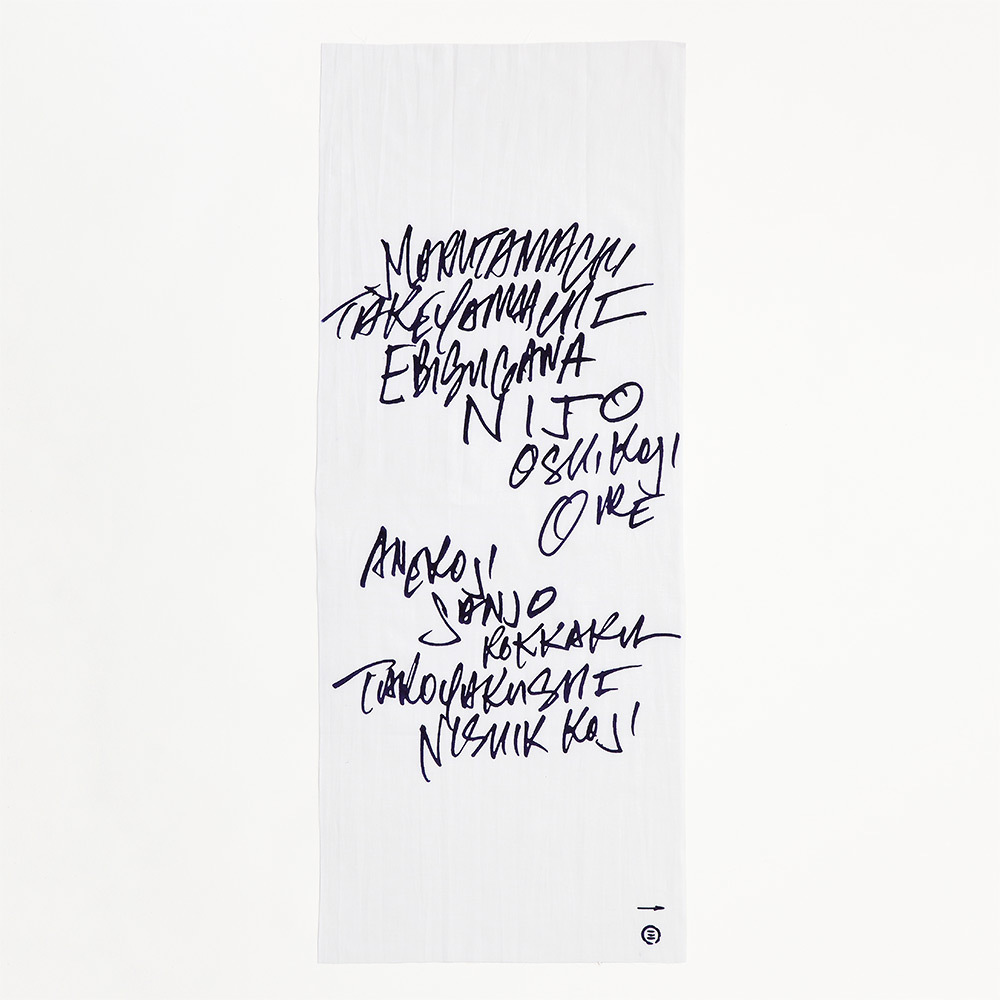 MARUTAMACHI
TAKEYAMACHI
EBISUGAWA
NIJO
OSHIKOJI
OIKE
ANEKOJI
SANJO
ROKKAKU
TAKOYAKUSHI
NISHIKIKOJI